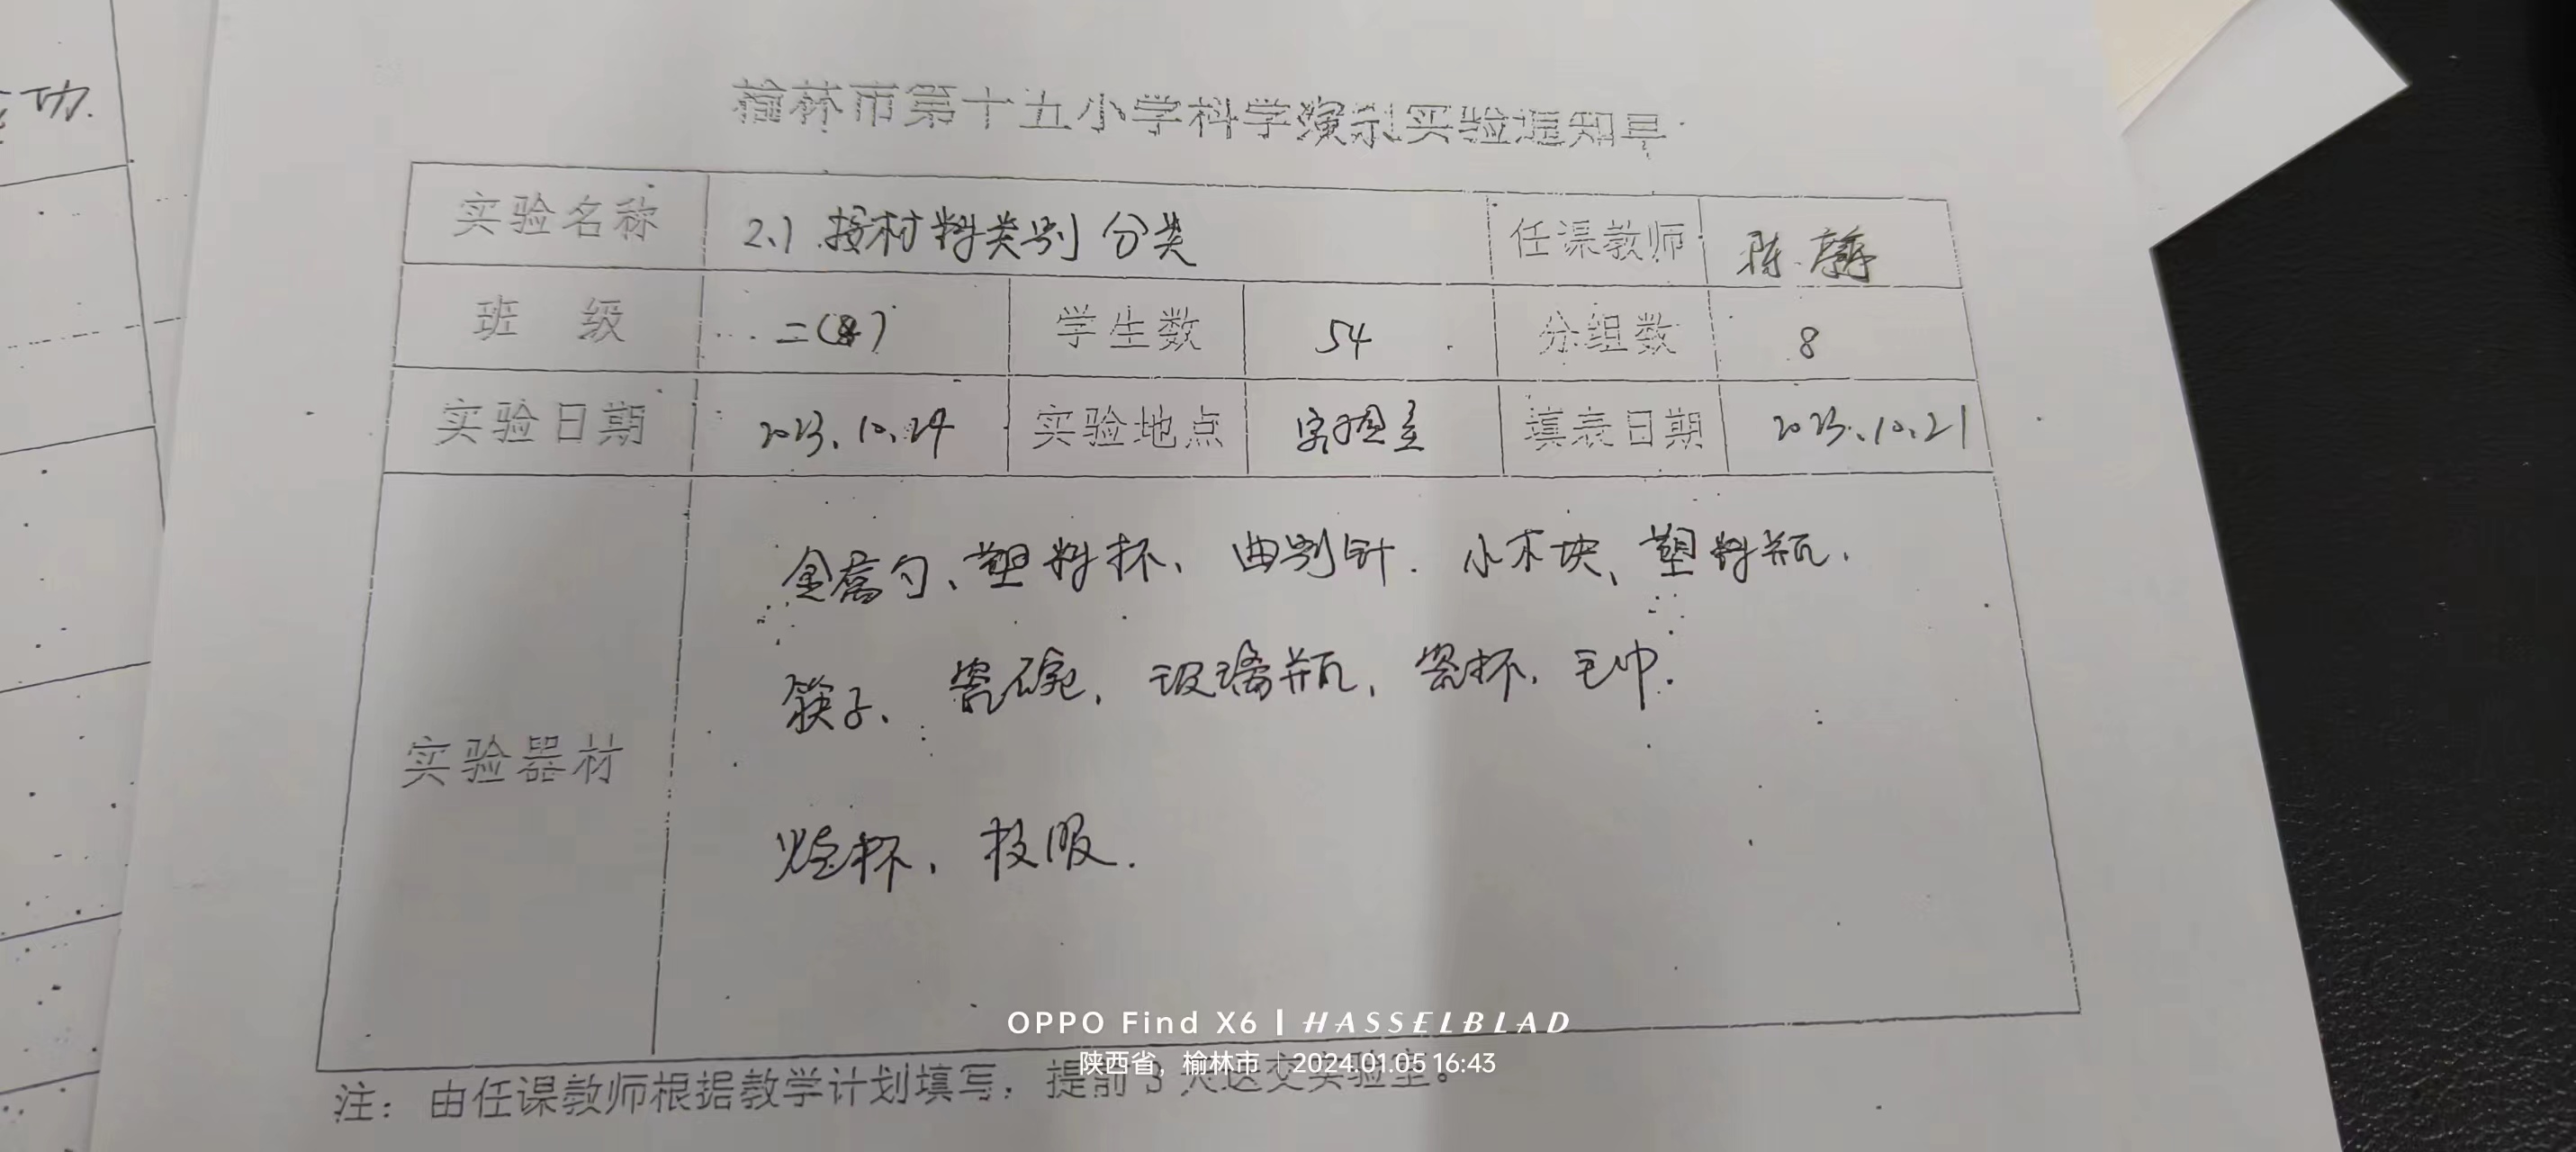 功.
榆林市第十五小学科学演示实验通知单
实验名称 2.1 按材料类别分类 任课教师 陈
班 级 二( ) 学生数 54 分组数 8
实验日期 2023.10.24 实验地点 实验室 填表日期 2023.10.21
实验器材
金属勺、塑料杯、曲别针、小木块、塑料瓶.
筷子、瓷碗、玻璃瓶、瓷杯、毛巾.
烧杯、校服.
OPPO Find X6 | HASSELBLAD
陕西省，榆林市 | 2024.01.05 16:43
注：由任课教师根据教学计划填写，提前3天送交实验室。